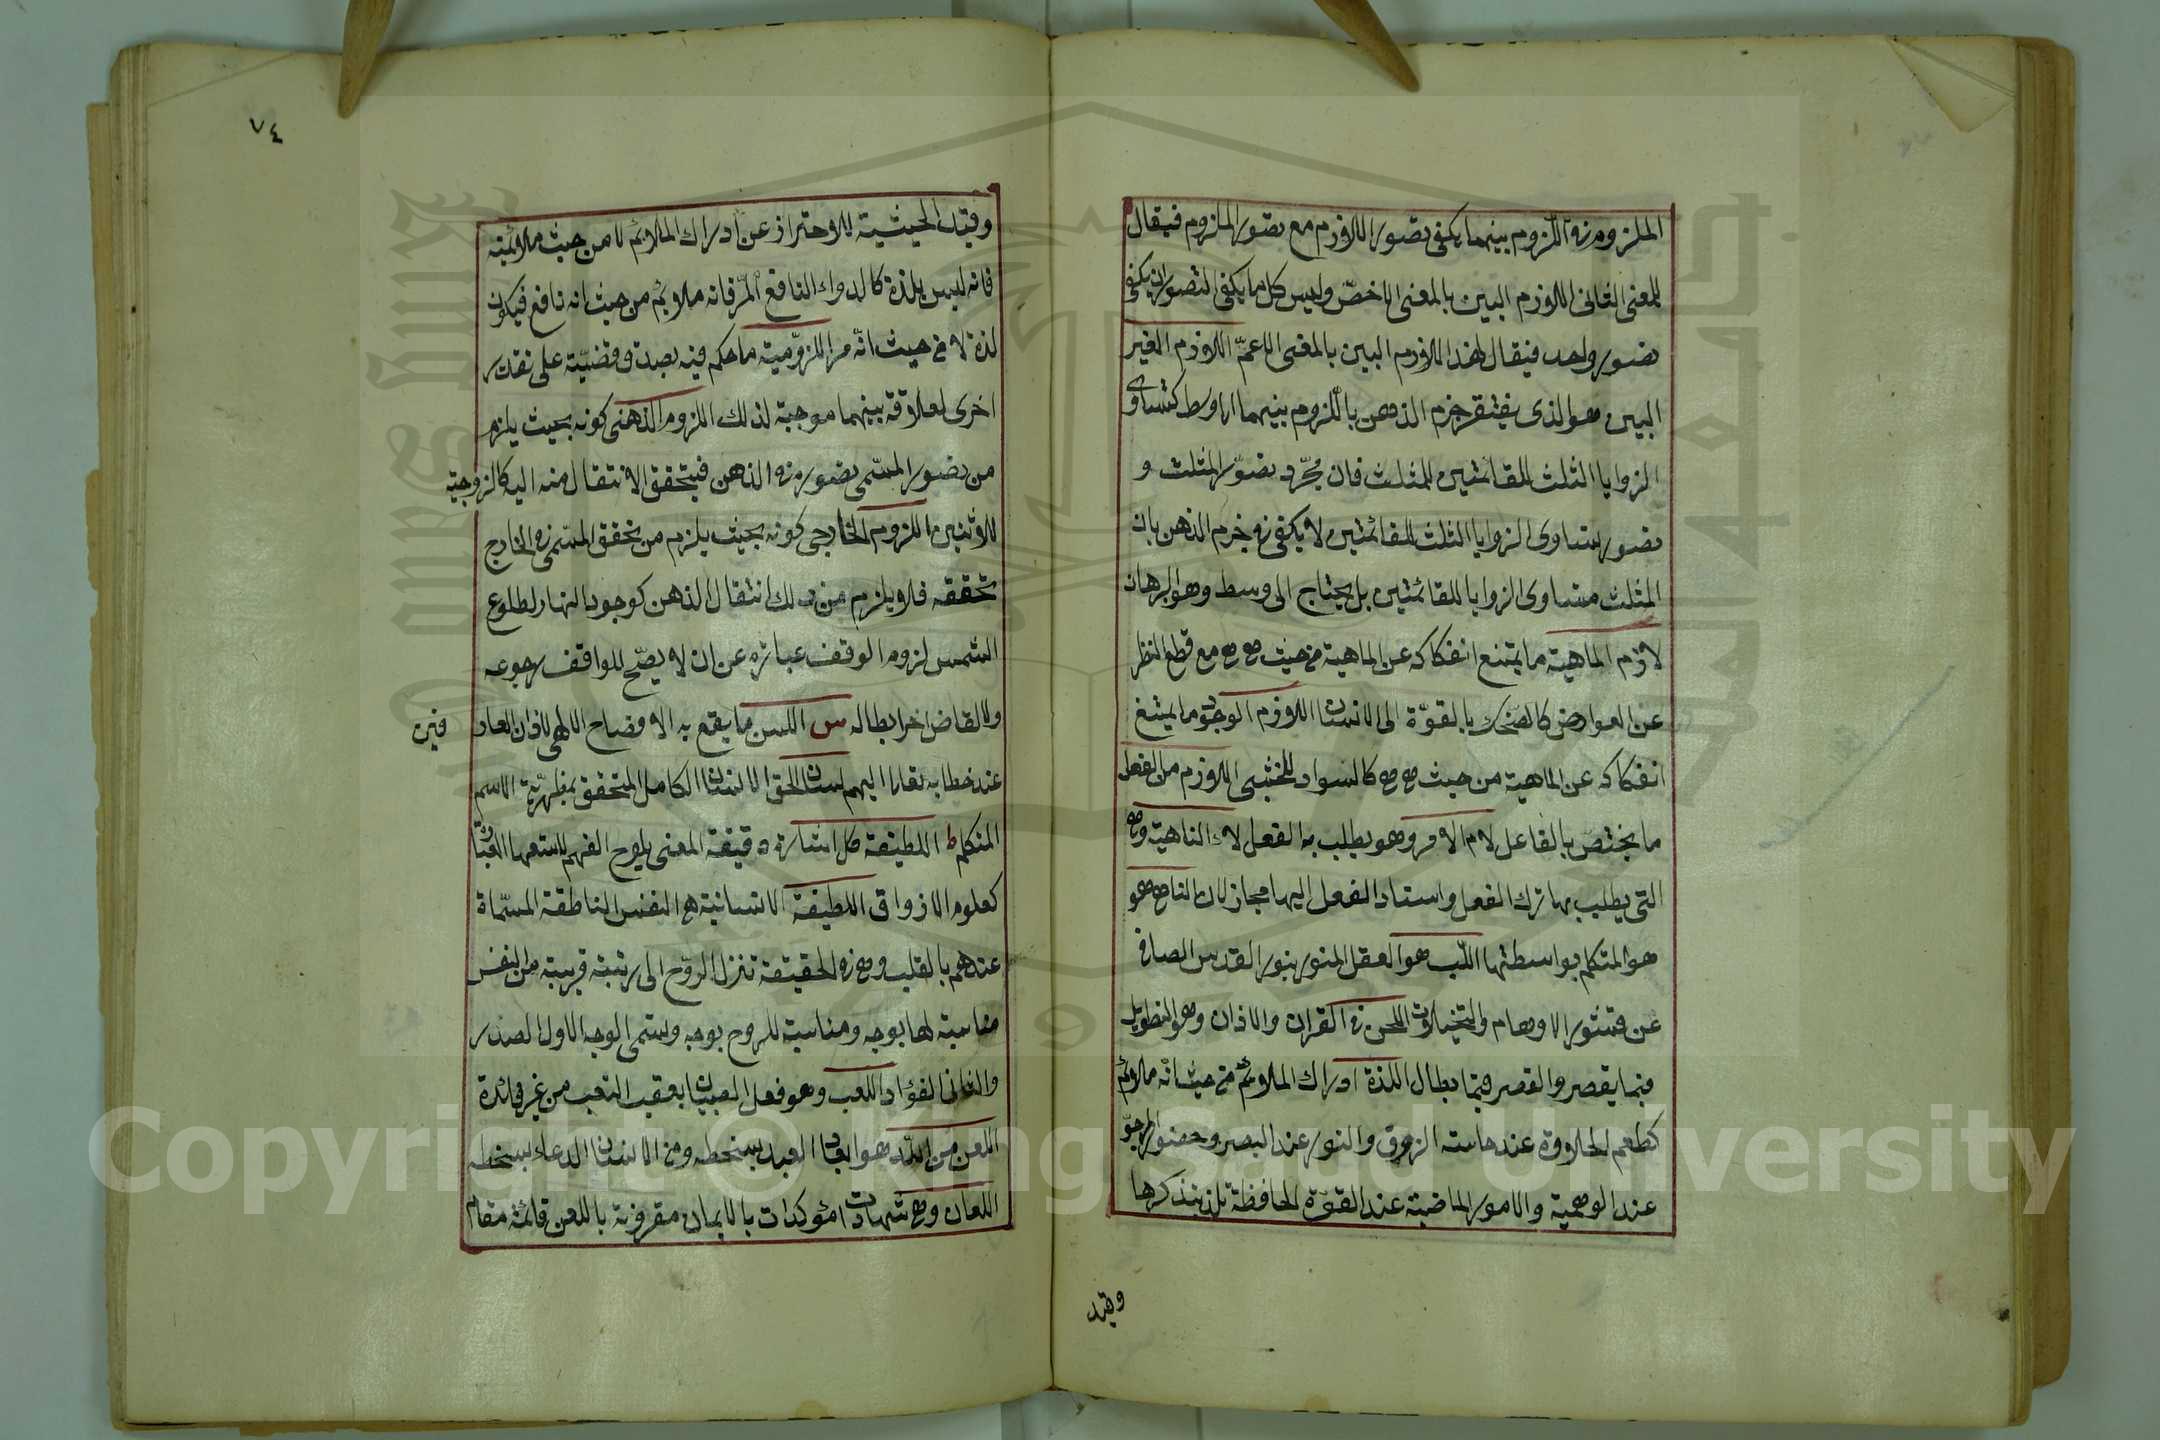 الملزوم في اللزوم بينهما يكفي تصور اللازم مع تصور الملزوم فيقال
للمعنى الثاني اللازم البين بالمعنى الاخص وليس كل ما يكفي التصوران يكفي
تصور واحد فيقال لهذا اللازم البين بالمعنى الاعم اللازم الغير
البين هو الذي يفتقر جزم الذهن باللزوم بينهما الى وسط كتساوي
الزوايا الثلث للقائمتين للمثلث فان مجرد تصور المثلث و
تصور تساوي الزوايا الثلث للقائمتين لا يكفي في جزم الذهن بان
المثلث متساوي الزوايا للقائمتين بل يحتاج الى وسط وهو البرهان
لازم الماهية ما يمتنع انفكاكه عن الماهية من حيث هي هي مع قطع النظر
عن العوارض كالضحك بالقوة الى الانسان اللازم الوجود ما يمتنع
انفكاكه عن الماهية من حيث هي هي كالسواد للحبشي اللازم من الفعل
ما يختص بالفاعل لام الامر وهو يطلب به الفعل لاء الناهية وهي
التي يطلب بها ترك الفعل واسناد الفعل اليها مجاز لان الناهي هو
هو المتكلم بواسطتها اللب هو العقل المنور بنور القدس الصافي
عن فتشور الاوهام والتخيلات اللحن في القرآن والاذان وهو التطويل
فيما يقصر والقصر فيما يطال اللذة ادراك الملائم من حيث انه ملائم
كطعم الحلاوة عند حاسته الذوق والنور عند البصر وحضور المرجو
عند الوهمية والامور الماضية عند القوة الحافظة تلذ بتذكرها
وقيد
٧٤
وقيد الحيثية للاحتراز عن ادراك الملائم لا من حيث ملائمته
فانه ليس بلذة كالدواء النافع المر فانه ملائم من حيث انه نافع فيكون
لذة لا من حيث انه مر اللزومية ما حكم فيه بصدق قضية على تقدير
اخرى لعلاقة بينهما موجبة لذلك اللزوم الذهني كونه بحيث يلزم
من تصور المسمى تصوره في الذهن فيتحقق الانتقال منه اليه كالزوجية
للاثنين اللزوم الخارجي كونه بحيث يلزم من تحقق المسمى في الخارج
تحققه فلا يلزم من ذلك انتقال الذهن كوجود النهار لطلوع
الشمس لزوم الوقف عبارة عن ان لا يصح للواقف رجوعه
ولا لقاض اخر ابطاله س اللسن ما يقع به الافضاح الالهي لاذان العارفين
عند خطابه تعالى اليهم لسان الحق الانسان الكامل المتحقق بمظهرية الاسم
المتكلم ط اللطيفة كل اشارة دقيقة المعنى يلوح الفهم لا تسعها العبارة
كعلوم الاذواق اللطيفة الانسانية هي النفس الناطقة المسماة
عندهم بالقلب وهي في الحقيقة تنزل الروح الى رتبة قريبة من النفس
مناسبة لها بوجه ومناسبة للروح بوجه وسمي الوجه الاول الصدر
والثاني الفؤاد اللعب وهو فعل الصبيان يعقب التعب من غير فائدة
اللعن من الله هو ابعاد العبد بسخطه ومن الانسان الدعاء بسخطه
اللعان وهي شهادات مؤكدات بالايمان مقرونة باللعن قائمة مقام
Copyright © King Saud University